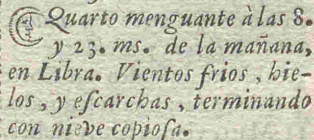 Quarto menguante à las 8.
y 23. ms. de la mañana,
en Libra. Vientos frios, hie-
los, y eſcarchas, terminando
con nieve copioſa.